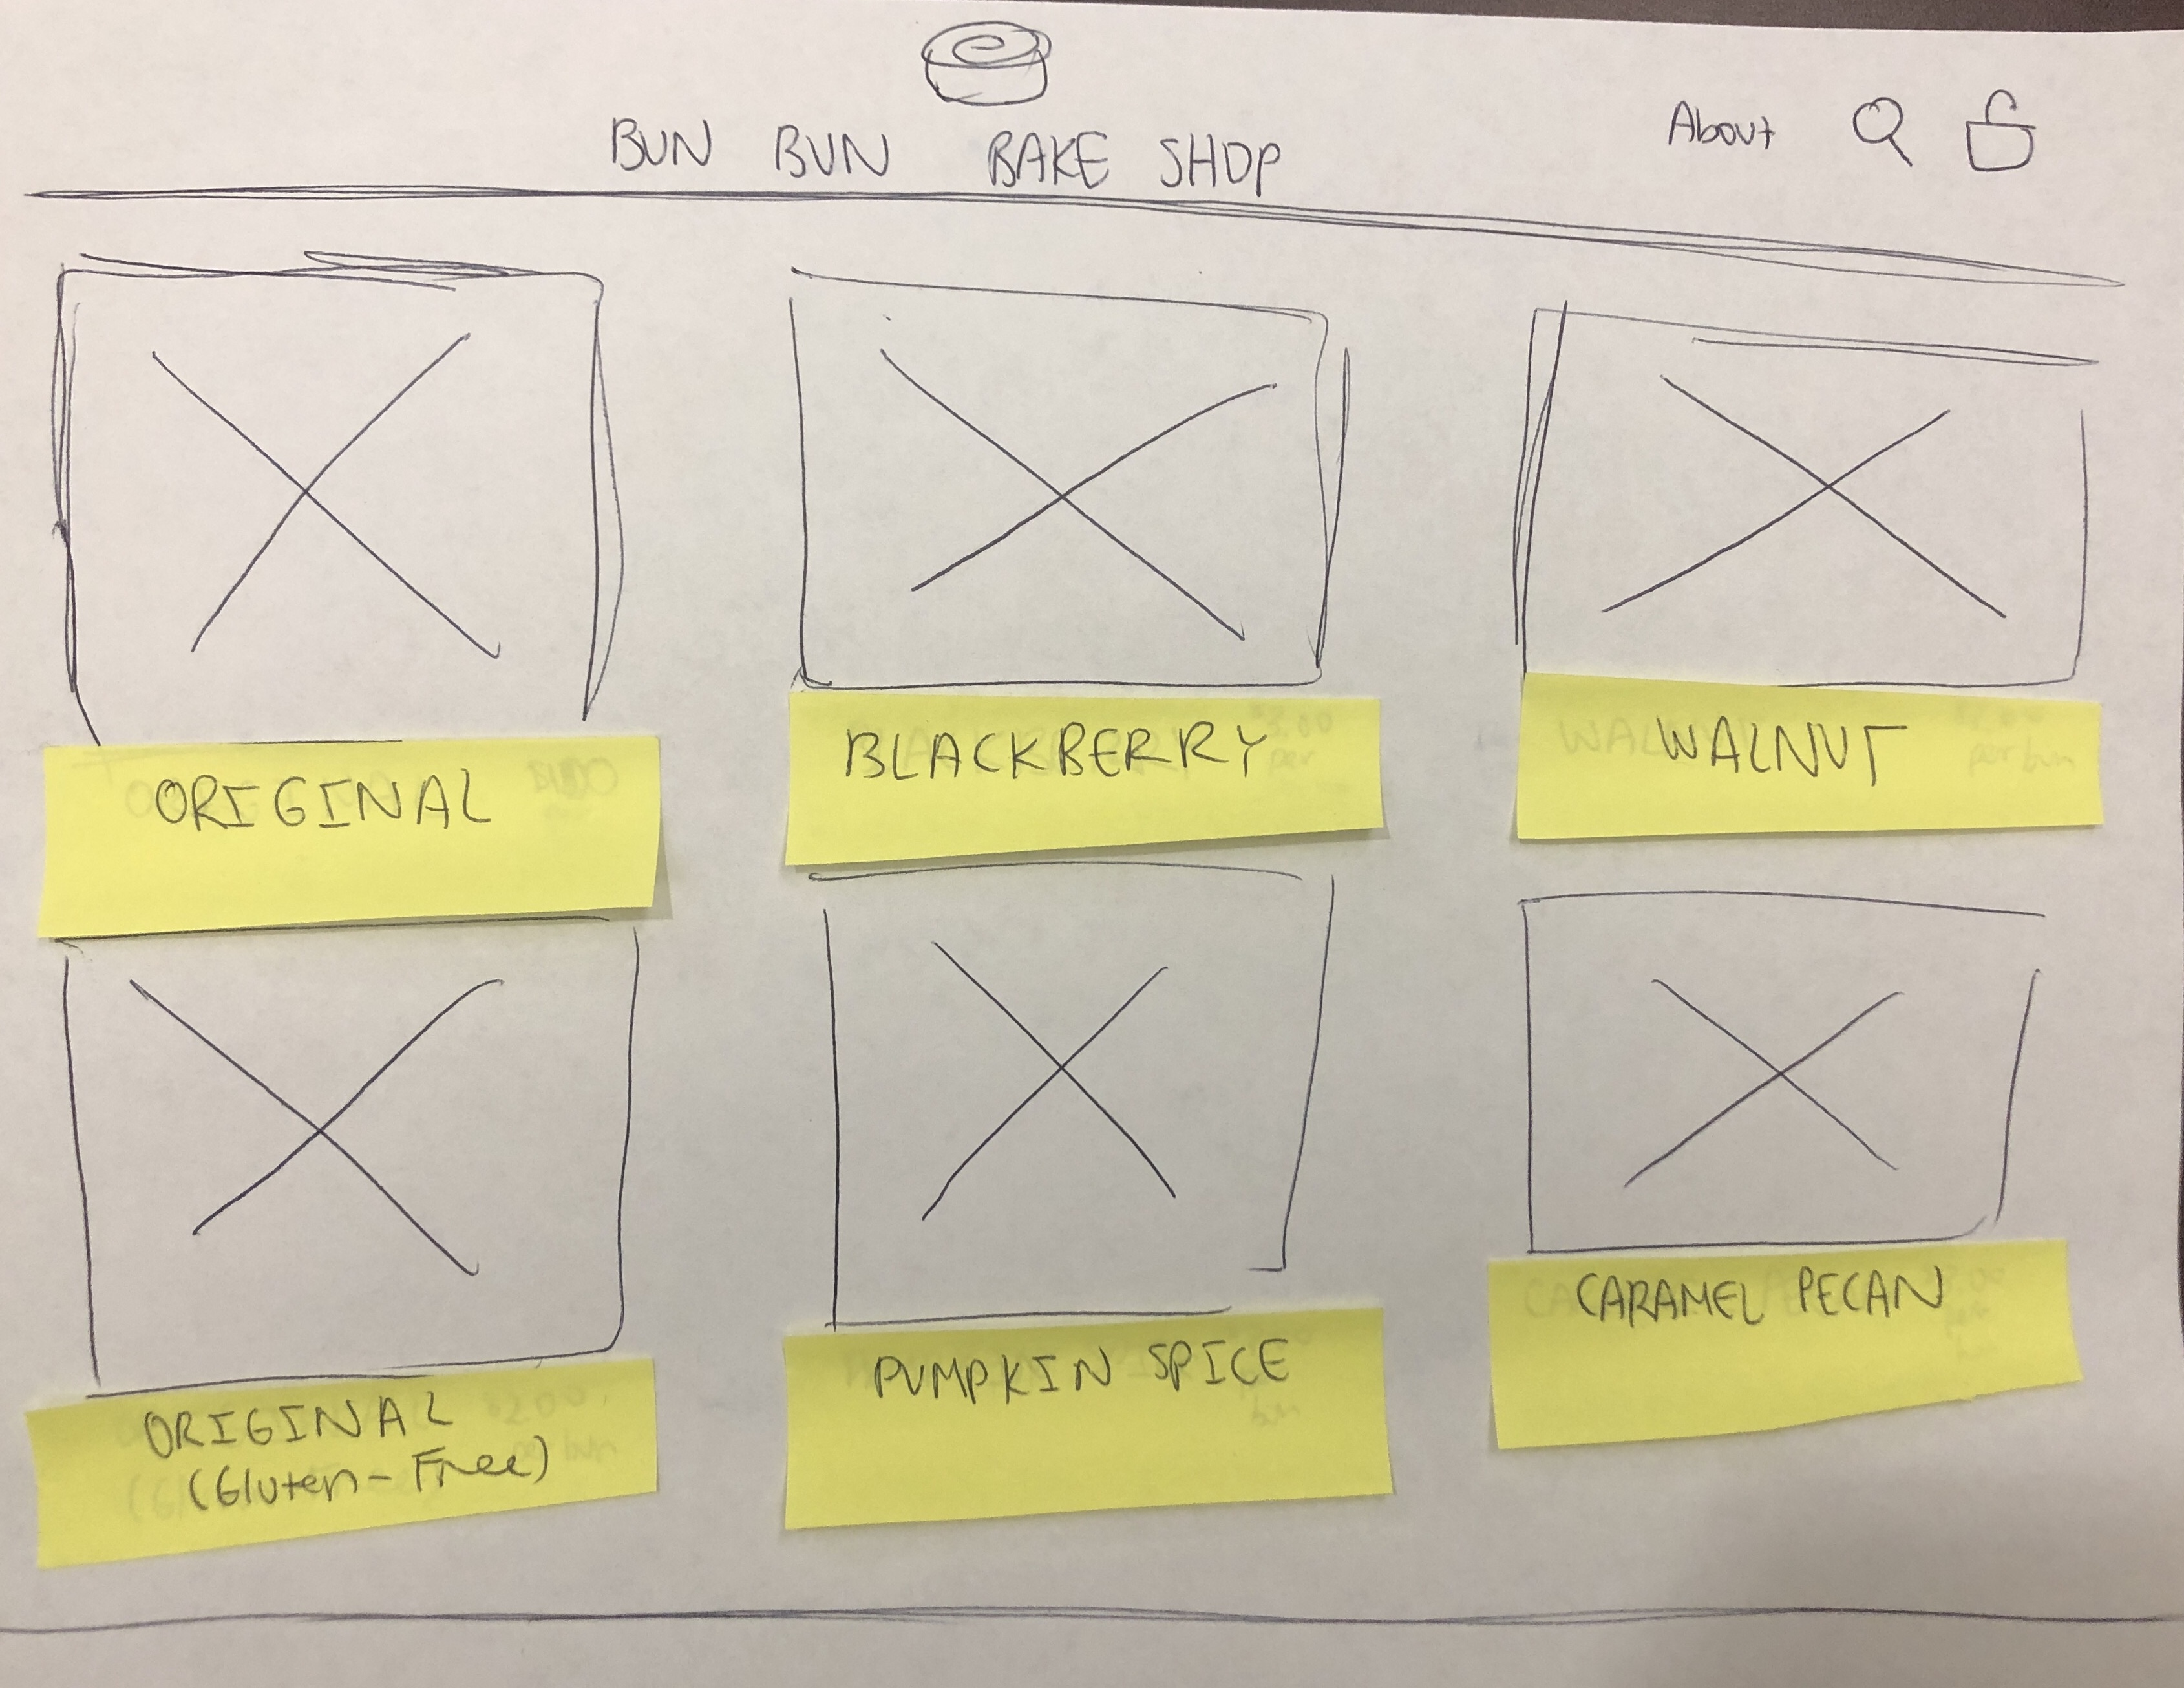 BUN BUN BAKE SHOP
About
ORIGINAL
BLACKBERRY
WALNUT
ORIGINAL
(Gluten-Free)
PUMPKIN SPICE
CARAMEL PECAN